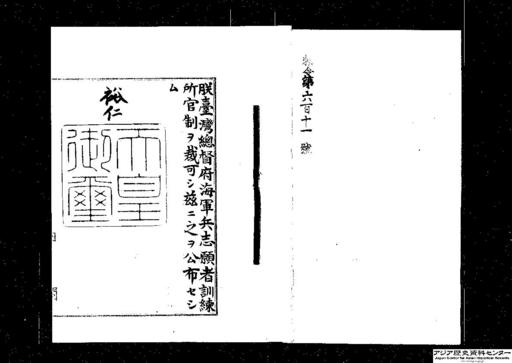 勅令第六百十一號
朕臺灣總督府海軍兵志願者訓練
所官制ヲ裁可シ茲ニ之ヲ公布セシ
ム
裕仁
天皇
御璽
アジア歴史資料センター
Japan Center for Asian Historical Records